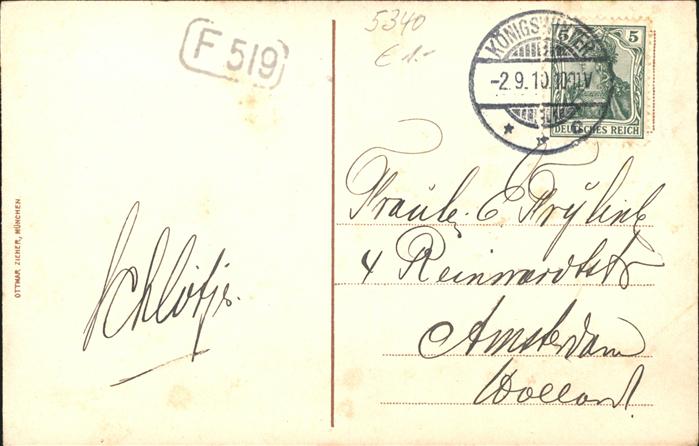 F 519
5340
€ 1.-
KÖNIGSWINTER
-2.9.10.10-11V
* * c
5 5
DEUTSCHES REICH
OTTMAR ZIEHER, MÜNCHEN
Schlötje.
Fraule. E. Fryling
4 Reinwardtstr
Amsterdam
Holland.